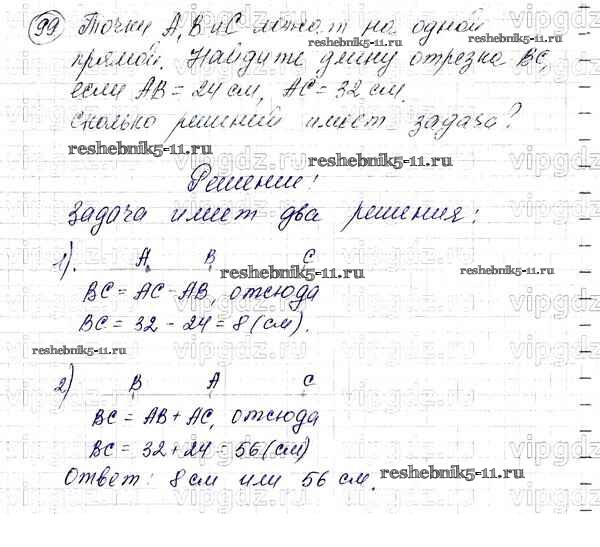 99 Точки А, В и С лежат на одной
прямой. Найдите длину отрезка ВС,
если АВ = 24 см, АС = 32 см.
Сколько решений имеет задача?
reshebnik5-11.ru
reshebnik5-11.ru
Решение:
Задача имеет два решения:
1). А В С
reshebnik5-11.ru
reshebnik5-11.ru
ВС = АС - АВ, отсюда
ВС = 32 - 24 = 8 (см).
reshebnik5-11.ru
2) В А С
ВС = АВ + АС, отсюда
ВС = 32 + 24 = 56 (см)
Ответ: 8 см или 56 см.
reshebnik5-11.ru
vipgdz.ru